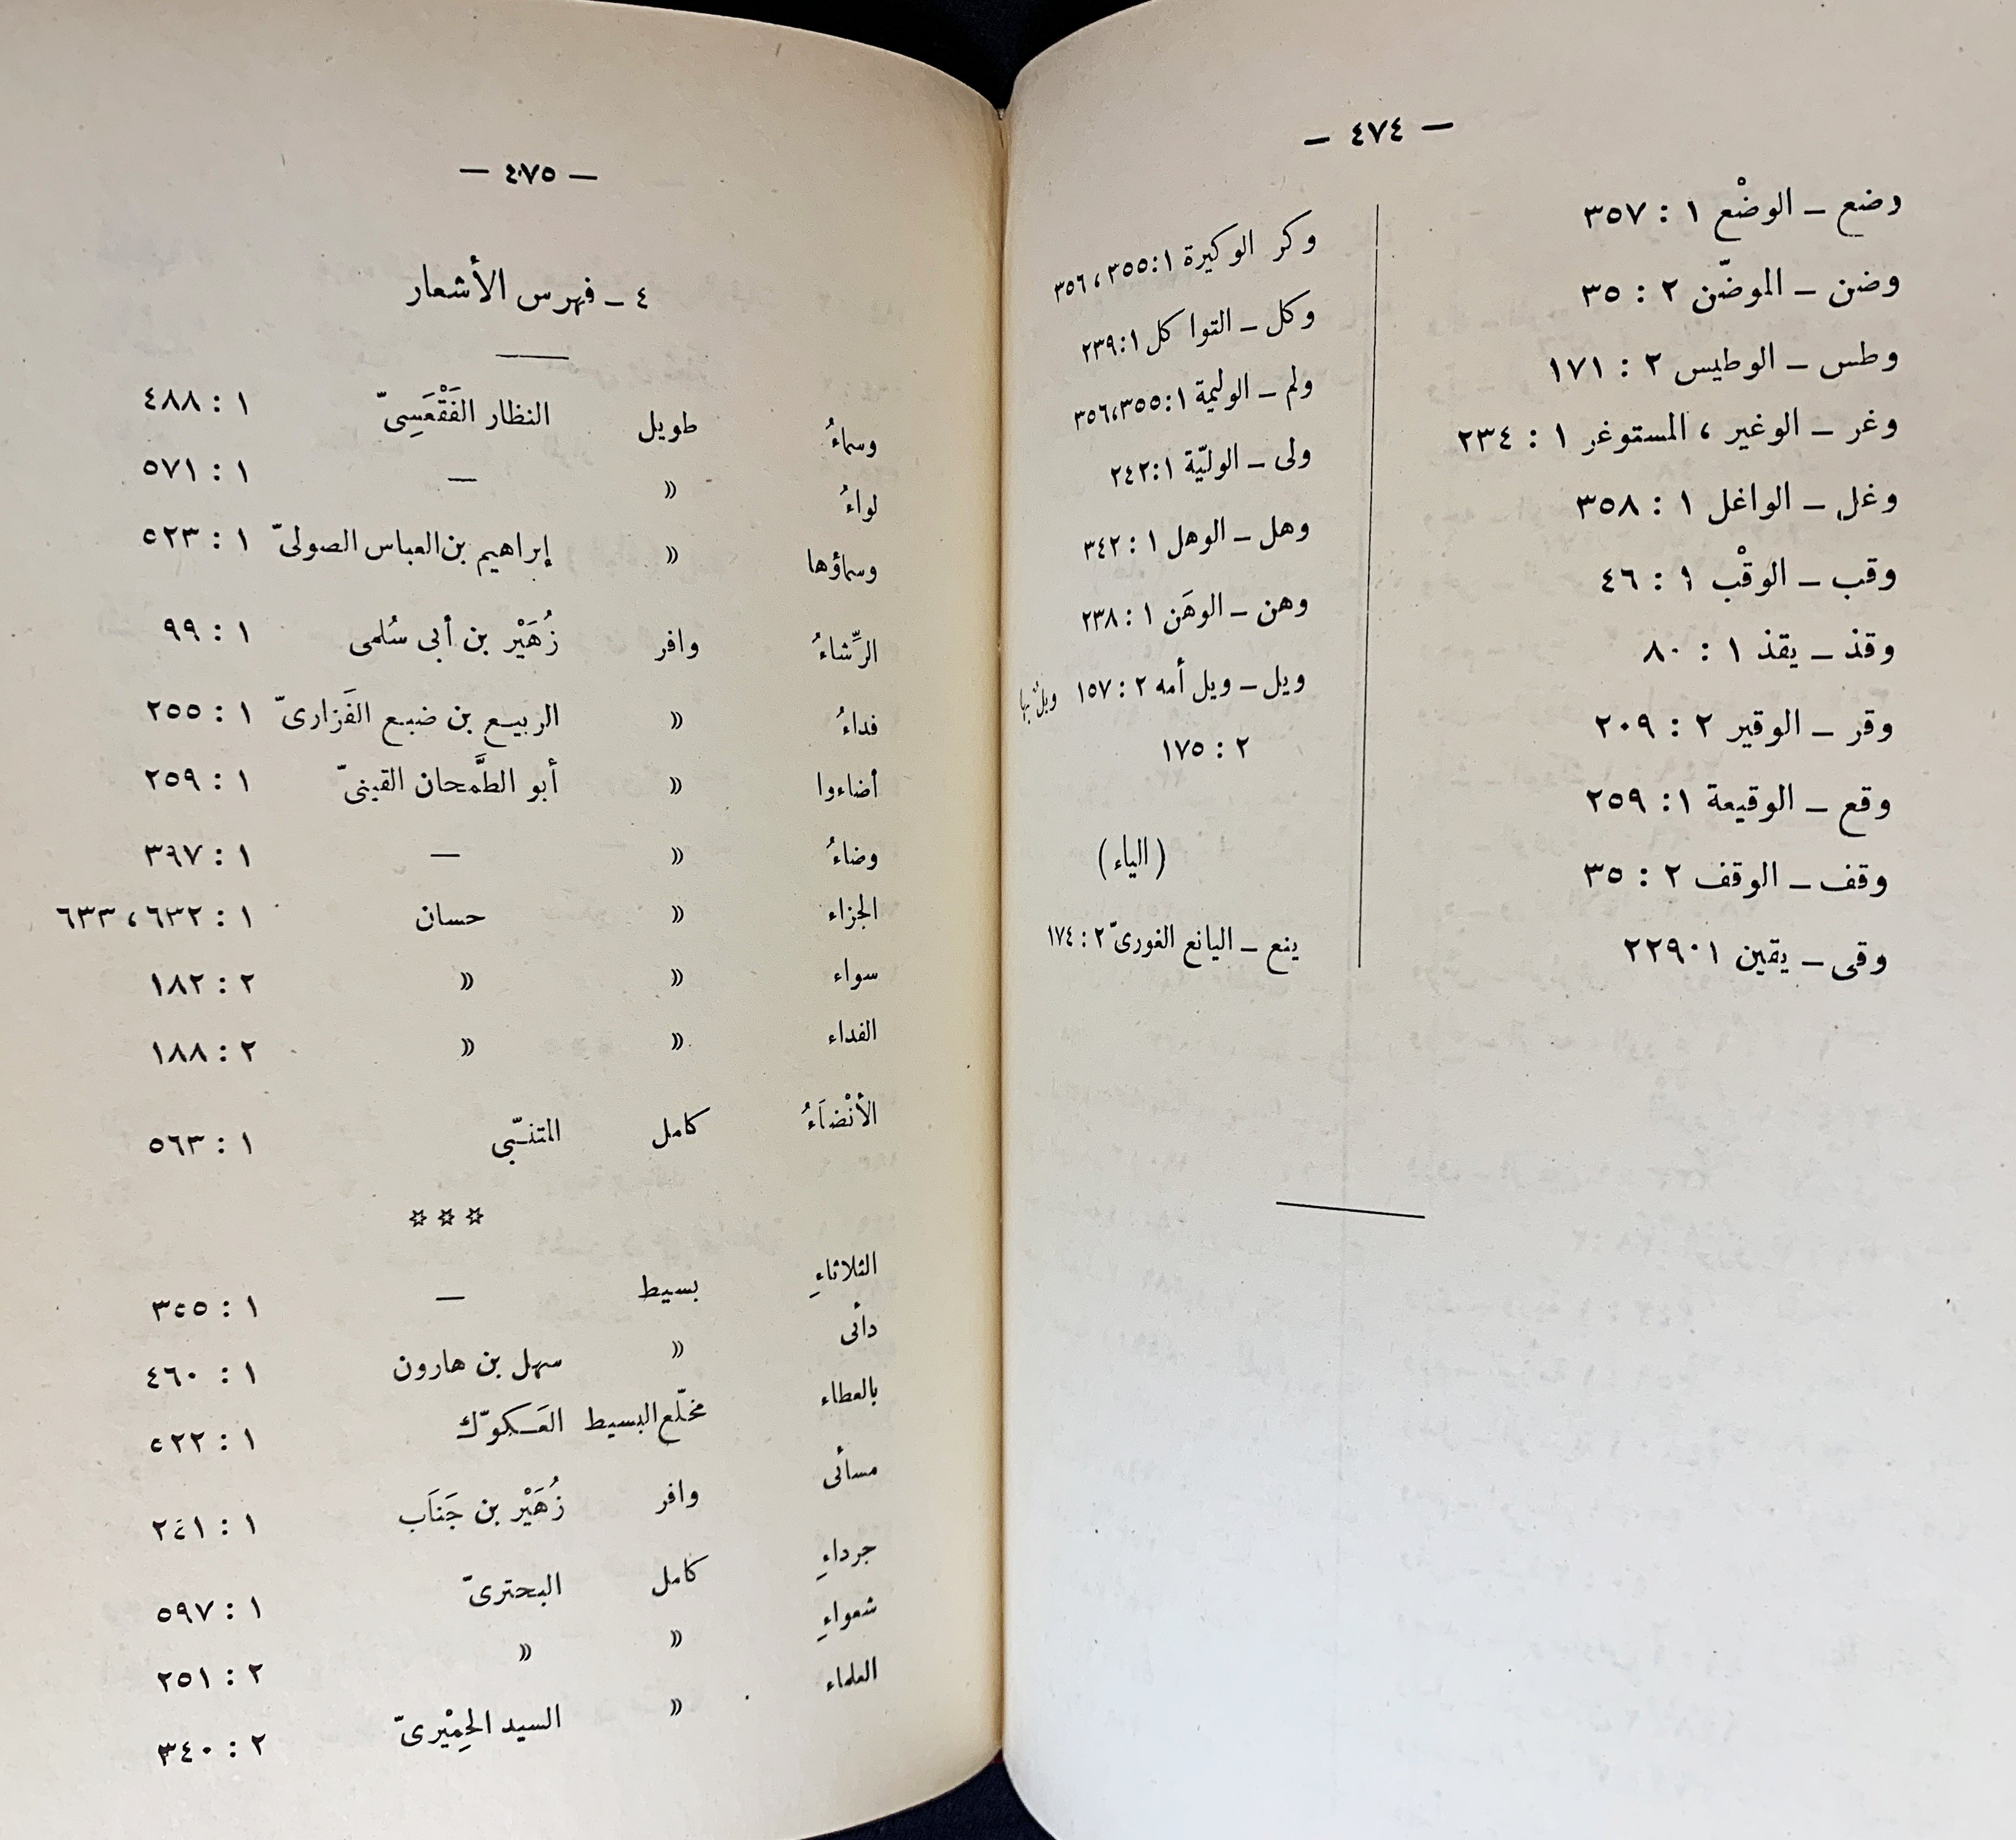 — ٤٧٤ —
وضع – الوضْع ١ : ٣٥٧
وضن – الموضّن ٢ : ٣٥
وطس – الوطيس ٢ : ١٧١
وغر – الوغير ، المستوغر ١ : ٢٣٤
وغل – الواغل ١ : ٣٥٨
وقب – الوقْب ١ : ٤٦
وقذ – يقذ ١ : ٨٠
وقر – الوقير ٢ : ٢٠٩
وقع – الوقيعة ١ : ٢٥٩
وقف – الوقف ٢ : ٣٥
وقى – يقين ٢٢٩٠١
وكر الوكيرة ١ : ٣٥٥ ، ٣٥٦
وكل – التواكل ١ : ٢٣٩
ولم – الوليمة ١ : ٣٥٥ ، ٣٥٦
ولى – الوليّة ١ : ٢٤٢
وهل – الوهل ١ : ٣٤٢
وهن – الوهَن ١ : ٢٣٨
ويل – ويل أمه ٢ : ١٥٧
٢ : ١٧٥
(الياء)
ينع – اليانع الغورىّ ٢ : ١٧٤
— ٤٧٥ —
٤ – فهرس الأشعار
وسماءُ طويل النظار الفَقْعَسِىّ ١ : ٤٨٨
لواءُ » — ١ : ٥٧١
وسماؤها » إبراهيم بن العباس الصولىّ ١ : ٥٢٣
الرِّشاءُ وافر زُهَيْر بن أبى سُلمى ١ : ٩٩
فداءُ » الربيع بن ضبع الفَزارىّ ١ : ٢٥٥
أضاءوا » أبو الطَّمحان القينىّ ١ : ٢٥٩
وضاءُ » — ١ : ٣٩٧
الجزاء » حسان ١ : ٦٣٢ ، ٦٣٣
سواء » » ٢ : ١٨٢
الفداء » » ٢ : ١٨٨
الأنْضَاءُ كامل المتنبّى ١ : ٥٦٣
* * *
الثلاثاءِ بسيط — ١ : ٣٥٥
دائى » سهل بن هارون ١ : ٤٦٠
بالعطاء مخلّع البسيط العَكوّك ١ : ٥٢٢
مسائى وافر زُهَيْر بن جَنَاب ١ : ٢٤١
جرداءِ كامل البحترىّ ١ : ٥٩٧
شعواءِ » » ٢ : ٢٥١
العلماء » السيد الحِمْيرىّ ٢ : ٣٤٠